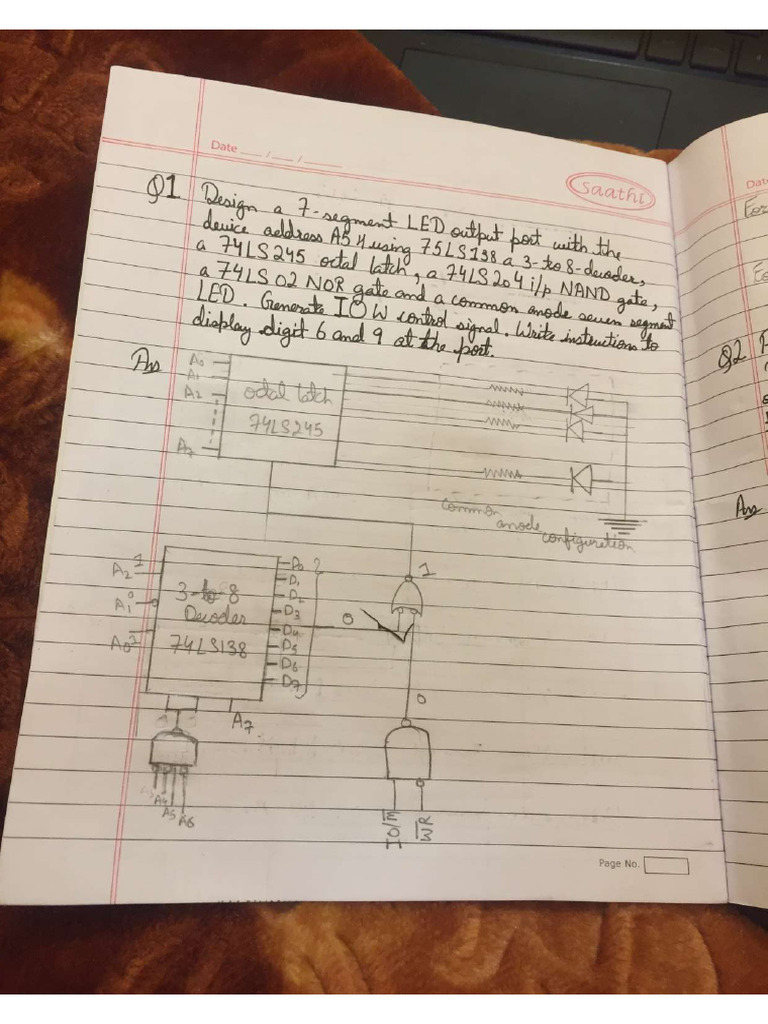 Date __/__/____
saathi
Q1 Design a 7-segment LED output port with the
device address A5H using 75LS138 a 3-to 8-decoder,
a 74LS245 octal latch, a 74LS20 4 i/p NAND gate,
a 74LS 02 NOR gate and a common anode seven segment
LED. Generate IOW control signal. Write instructions to
display digit 6 and 9 at the port.
Ans
A0
A1
A2
A7
octal latch
74LS245
common
anode
configuration
A2 1
A1 0
A0
3-to-8
Decoder
74LS138
D0
D1
D2
D3
D4
D5
D6
D7
0
1
0
A7
A3
A4
A5
A6
IO/M
R
W
Page No.
Date
Q2
Ans